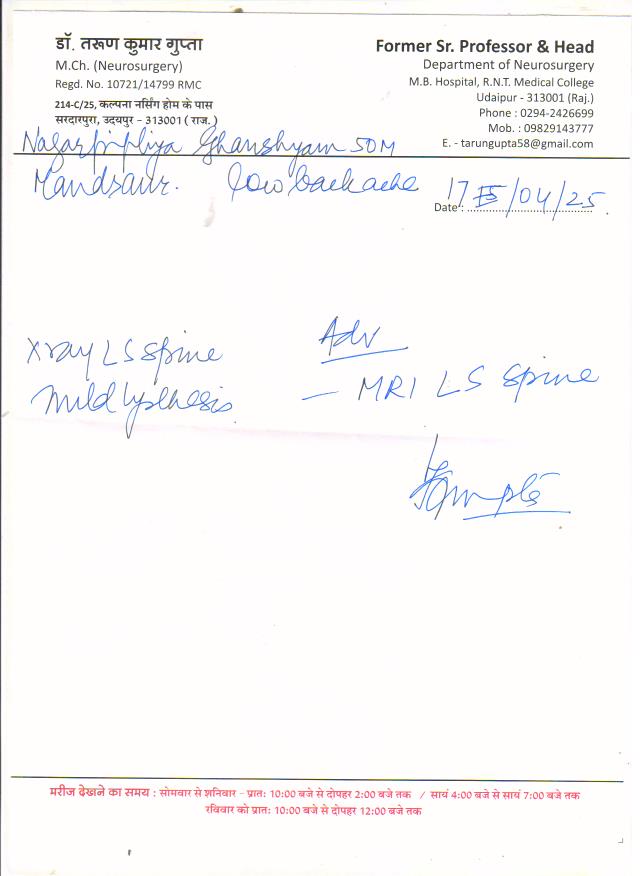 डॉ. तरूण कुमार गुप्ता
M.Ch. (Neurosurgery)
Regd. No. 10721/14799 RMC
214-C/25, कल्पना नर्सिंग होम के पास
सरदारपुरा, उदयपुर - 313001 ( राज. )
Former Sr. Professor & Head
Department of Neurosurgery
M.B. Hospital, R.N.T. Medical College
Udaipur - 313001 (Raj.)
Phone : 0294-2426699
Mob. : 09829143777
E. - tarungupta58@gmail.com
Nagarpipliya Ghanshyam 50M
Mandsaur. low backache
Date : 17/04/25
Xray LS spine
mild lysthesis
Adv
- MRI LS spine
मरीज देखने का समय : सोमवार से शनिवार - प्रातः 10:00 बजे से दोपहर 2:00 बजे तक / सायं 4:00 बजे से सायं 7:00 बजे तक
रविवार को प्रातः 10:00 बजे से दोपहर 12:00 बजे तक